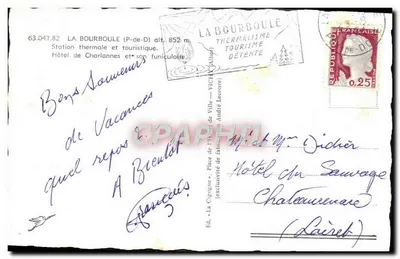 63.047.82 LA BOURBOULE (P-de-D) alt. 852 m
Station thermale et touristique.
Hôtel de Charlannes et son funiculaire
LA BOURBOULE
THERMALISME
TOURISME
DÉTENTE
RÉPUBLIQUE FRANÇAISE
0,25
Bons Souvenirs
de Vacances
quel repos !
A Bientôt
François
Ed. « La Cigogne », Place de l'Hôtel de Ville - VICHY (Allier)
(exclusivité de fabrication André Leconte)
M. et Mme Didier
Hôtel du Sauvage
Chateaurenard
(Loiret)
CARTHAPHILE